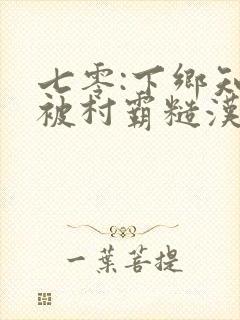 七零:下鄉知
被村霸糙漢
一葉菩提